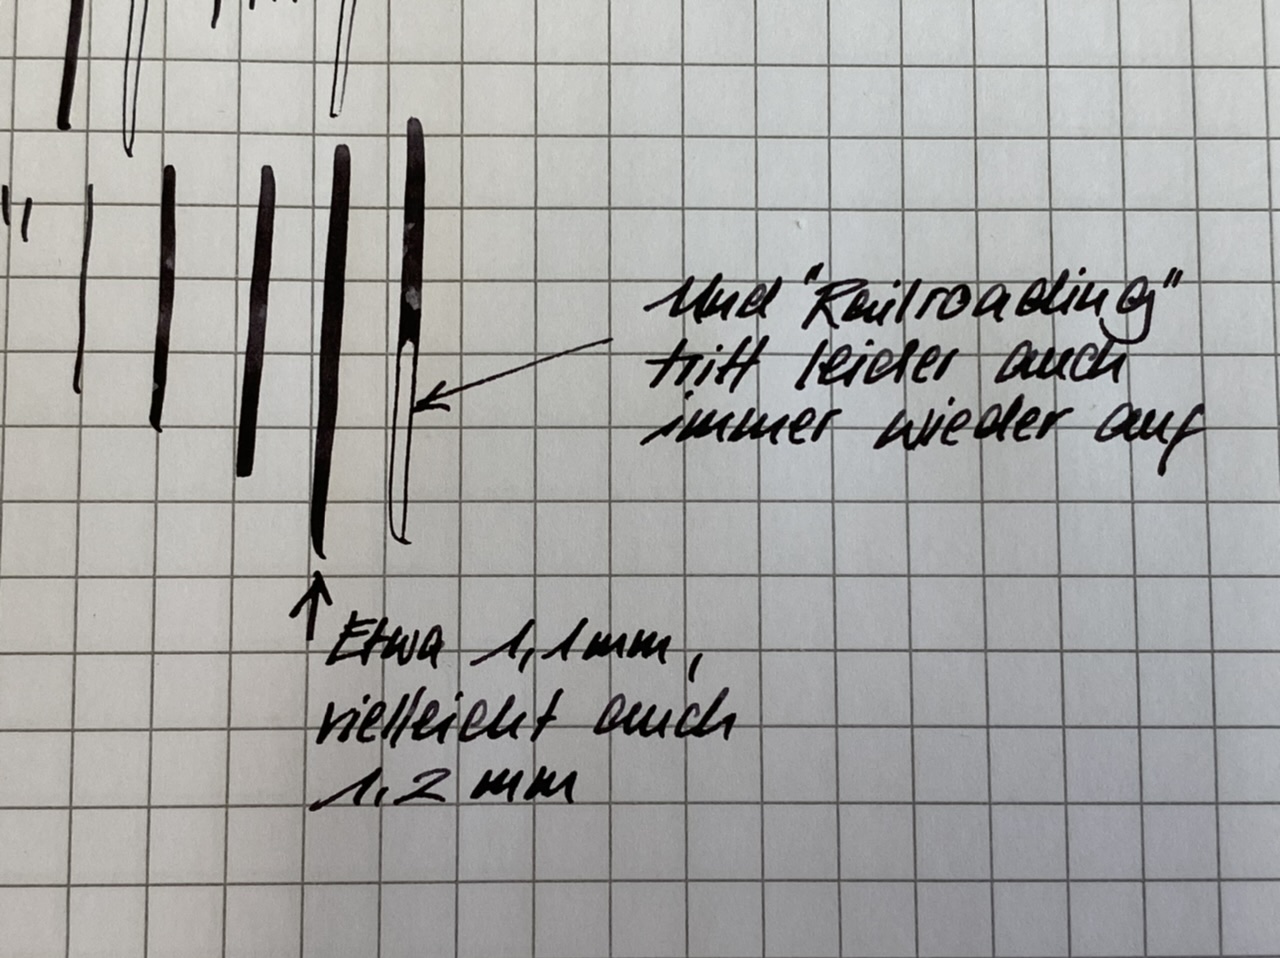 Und "Railroading"
tritt leider auch
immer wieder auf
Etwa 1,1mm,
vielleicht auch
1,2 mm